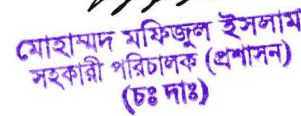 মোহাম্মদ মফিজুল ইসলাম
সহকারী পরিচালক (প্রশাসন)
(চঃ দাঃ)